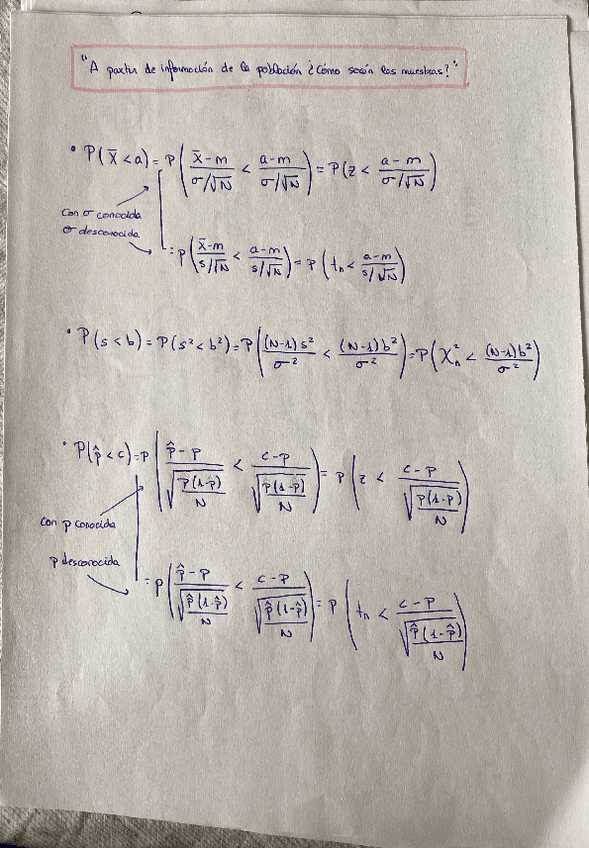 "A partir de información de la población ¿Cómo serán las muestras?"
• P(x̄ < a) = P( (x̄ - m)/(σ/√N) < (a - m)/(σ/√N) ) = P( z < (a - m)/(σ/√N) )
con σ conocida
σ desconocida
= P( (x̄ - m)/(s/√N) < (a - m)/(s/√N) ) = P( tₙ < (a - m)/(s/√N) )
• P(s < b) = P(s² < b²) = P( (N-1)s²/σ² < (N-1)b²/σ² ) = P( χ²ₙ < (N-1)b²/σ² )
• P(p̂ < c) = P( (p̂ - p)/√(p(1-p)/N) < (c - p)/√(p(1-p)/N) ) = P( z < (c - p)/√(p(1-p)/N) )
con p conocida
p desconocida
= P( (p̂ - p)/√(p̂(1-p̂)/N) < (c - p)/√(p̂(1-p̂)/N) ) = P( tₙ < (c - p)/√(p̂(1-p̂)/N) )